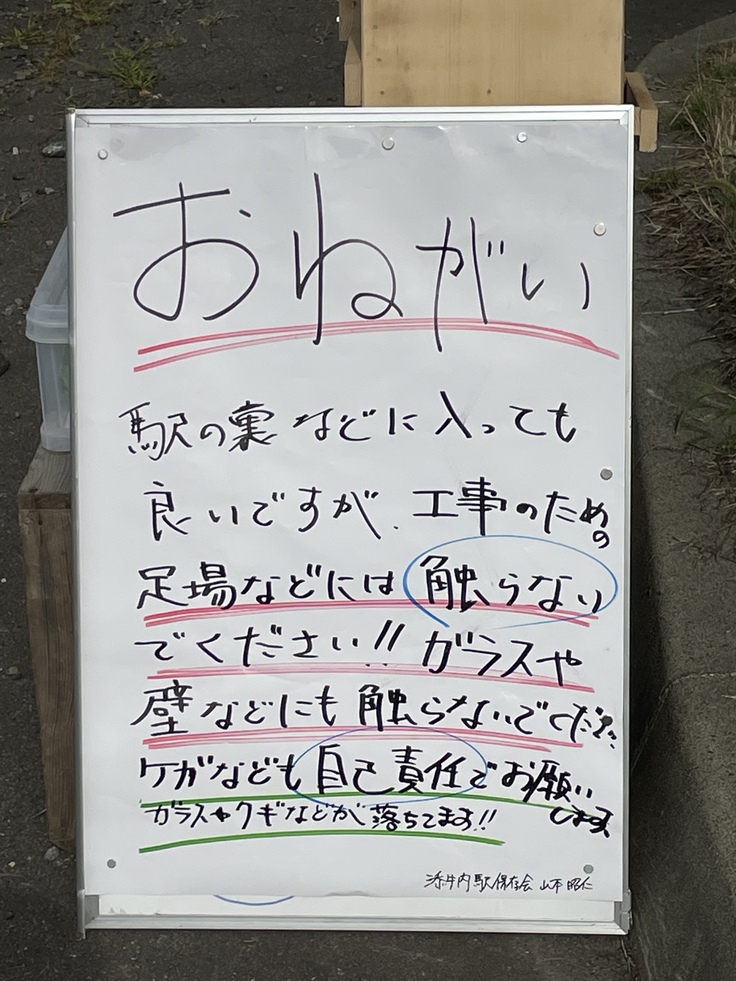 おねがい
駅の裏などに入っても
良いですが、工事のための
足場などには触らない
でください!!ガラスや
壁などにも触らないでください
ケガなども自己責任でお願い
します
ガラスやクギなどが落ちてます!!
添牛内駅保存会 山本昭仁